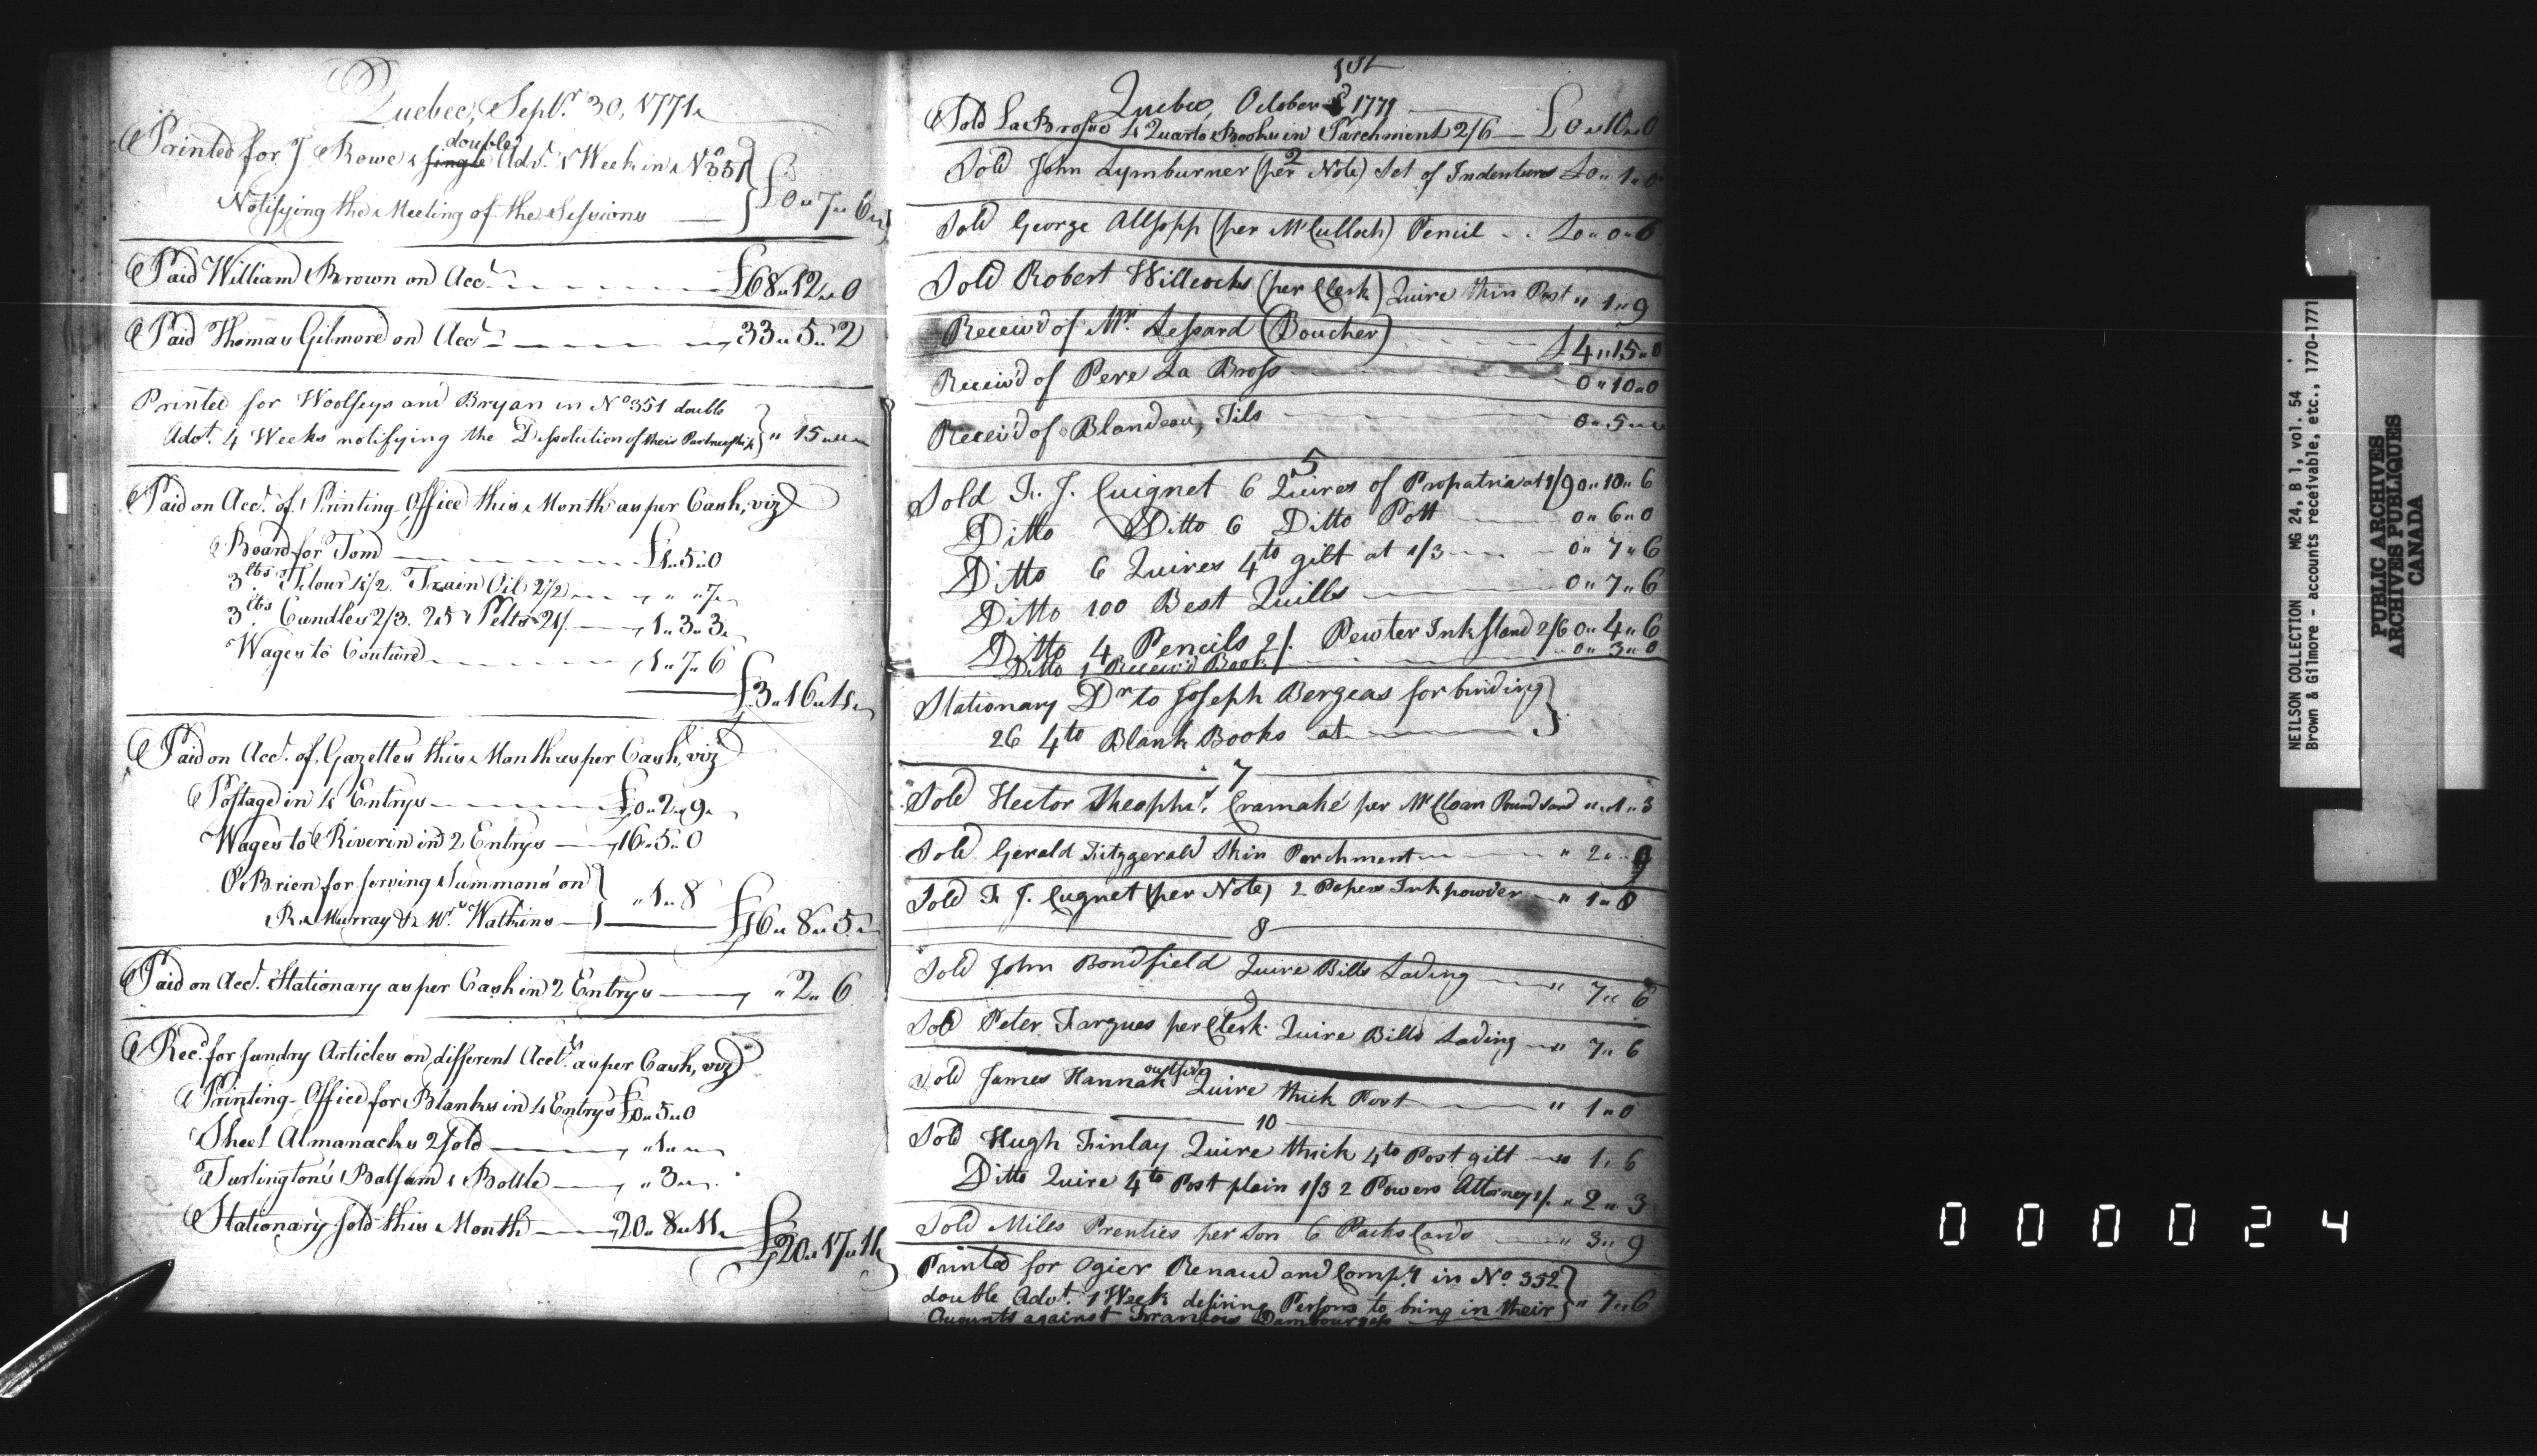 Quebec, Septr. 30, 1771
Printed for J Rowe 1 single double Advt. 1 Week in No 351
Notifying the Meeting of the Sessions £0 " 7 " 6 "
Paid William Brown on Acct. £68 " 12 " 0
Paid Thomas Gilmore on Acct. 33 " 5 " 2
Printed for Woolseys and Bryan in No 351 double
Advt. 4 Weeks notifying the Dissolution of their Partnership " 15 " "
Paid on Acct. of Printing-Office this Month as per Cash, viz
Board for Tom £1 " 5 " 0
3 lbs Flour 4/2. Train Oil 2/2 " " 7
3 lbs Candles 2/3. 25 Pelts 21/. 1 " 3 " 3
Wages to Couture 1 " 7 " 6
£3 " 16 " 4
Paid on Acct. of Gazettes this Month as per Cash, viz
Postage in 4 Entrys £0 " 2 " 9
Wages to Riverin in 2 Entrys 16 " 5 " 0
O'Brien for serving Summons' on
R. Murray & Mr. Watkins " 1 " 8
£16 " 8 " 5
Paid on Acct. Stationary as per Cash in 2 Entrys " 2 " 6
Recd. for sundry Articles on different Accts. as per Cash, viz
Printing-Office for Blanks in 4 Entrys £0 " 5 " 0
Sheet Almanacks 2 sold " 1 "
Turlington's Balsam 1 Bottle " 3 "
Stationary sold this Month 20 " 8 " 11
£20 " 17 " 11
1st
Quebec, October 1771
Sold La Brosse 4 Quarto Books in Parchment 2/6 £0 " 10 " 0
2
Sold John Lymburner (per Note) Set of Indentures £0 " 1 " 0
Sold George Allsopp (per McCulloch) Pencil £0 " 0 " 6
Sold Robert Willcocks (per Clerk) Quire thin Post " 1 " 9
Receiv'd of Mr. Lessard (Boucher) £4 " 15 " 0
Receiv'd of Pere La Bross 0 " 10 " 0
Receiv'd of Blandeau, Fils 0 " 5 "
5
Sold F. J. Cuignet 6 Quires of Propatria at 1/9 0 " 10 " 6
Ditto Ditto 6 Ditto Pott 0 " 6 " 0
Ditto 6 Quires 4to gilt at 1/3 0 " 7 " 6
Ditto 100 Best Quills 0 " 7 " 6
Ditto 4 Pencils 2/. Pewter Inkstand 2/6 0 " 4 " 6
Ditto 1 Receiv'd Book 0 " 3 " 0
Stationary Dr to Joseph Bergeas for binding
26 4to Blank Books at
7
Sold Hector Theophs. Cramahé per McCloan Pound Sand " 1 " 3
Sold Gerald Fitzgerald Skin Parchment " 2 " 9
Sold F J. Cugnet (per Note) 2 Papers Inkpowder " 1 " 0
8
Sold John Bondfield Quire Bills Lading " 7 " 6
9
Sold Peter Fargues per Clerk Quire Bills Lading " 7 " 6
Sold James Hannah outside Quire thick Post " 1 " 0
10
Sold Hugh Finlay Quire thick 4to Post gilt " 1 " 6
Ditto Quire 4to Post plain 1/3 2 Powers Attorney 1/. " 2 " 3
Sold Miles Prenties per Son 6 Packs Cards " 3 " 9
Printed for Ogier Renaud and Compy. in No. 352
double Advt. 1 Week desiring Persons to bring in their " 7 " 6
Accounts against Francois Dambourges
NEILSON COLLECTION MG 24, B 1, vol. 54
Brown & Gilmore - accounts receivable, etc., 1770-1771
PUBLIC ARCHIVES
ARCHIVES PUBLIQUES
CANADA
000024